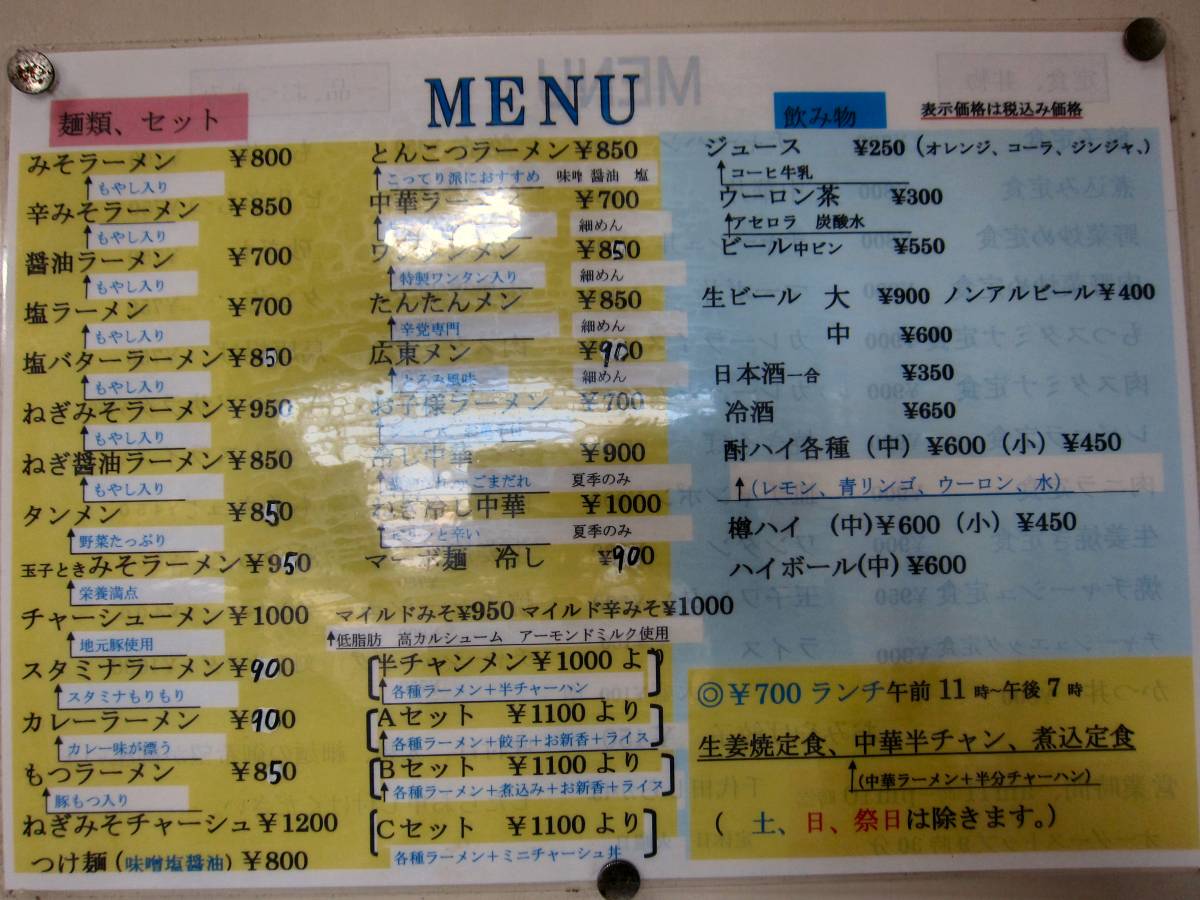 MENU
麺類、セット
みそラーメン ¥800
もやし入り
辛みそラーメン ¥850
もやし入り
醤油ラーメン ¥700
もやし入り
塩ラーメン ¥700
もやし入り
塩バターラーメン¥850
もやし入り
ねぎみそラーメン¥950
もやし入り
ねぎ醤油ラーメン¥850
もやし入り
タンメン ¥850
野菜たっぷり
玉子ときみそラーメン¥950
栄養満点
チャーシューメン¥1000
地元豚使用
スタミナラーメン¥900
スタミナもりもり
カレーラーメン ¥900
カレー味が漂う
もつラーメン ¥850
豚もつ入り
ねぎみそチャーシュ¥1200
つけ麺(味噌塩醤油)¥800
とんこつラーメン¥850
こってり派におすすめ 味噌 醤油 塩
中華ラーメン ¥700
細めん
ワンタンメン ¥850
特製ワンタン入り 細めん
たんたんメン ¥850
辛党専門 細めん
広東メン ¥900
とろみ風味 細めん
お子様ラーメン ¥700
冷し中華 ¥900
ごまだれ 夏季のみ
ねぎ冷し中華 ¥1000
ピリッと辛い 夏季のみ
マーボ麺 冷し ¥900
マイルドみそ¥950 マイルド辛みそ¥1000
低脂肪 高カルシューム アーモンドミルク使用
半チャンメン¥1000より
各種ラーメン+半チャーハン
Aセット ¥1100より
各種ラーメン+餃子+お新香+ライス
Bセット ¥1100より
各種ラーメン+煮込み+お新香+ライス
Cセット ¥1100より
各種ラーメン+ミニチャーシュ丼
飲み物
表示価格は税込み価格
ジュース ¥250(オレンジ、コーラ、ジンジャ、)
コーヒ牛乳
ウーロン茶 ¥300
アセロラ 炭酸水
ビール中ビン ¥550
生ビール 大 ¥900 ノンアルビール¥400
中 ¥600
日本酒一合 ¥350
冷酒 ¥650
酎ハイ各種(中)¥600(小)¥450
(レモン、青リンゴ、ウーロン、水)
樽ハイ (中)¥600(小)¥450
ハイボール(中)¥600
◎¥700 ランチ午前 11 時~午後 7 時
生姜焼定食、中華半チャン、煮込定食
(中華ラーメン+半分チャーハン)
( 土、日、祭日は除きます。)